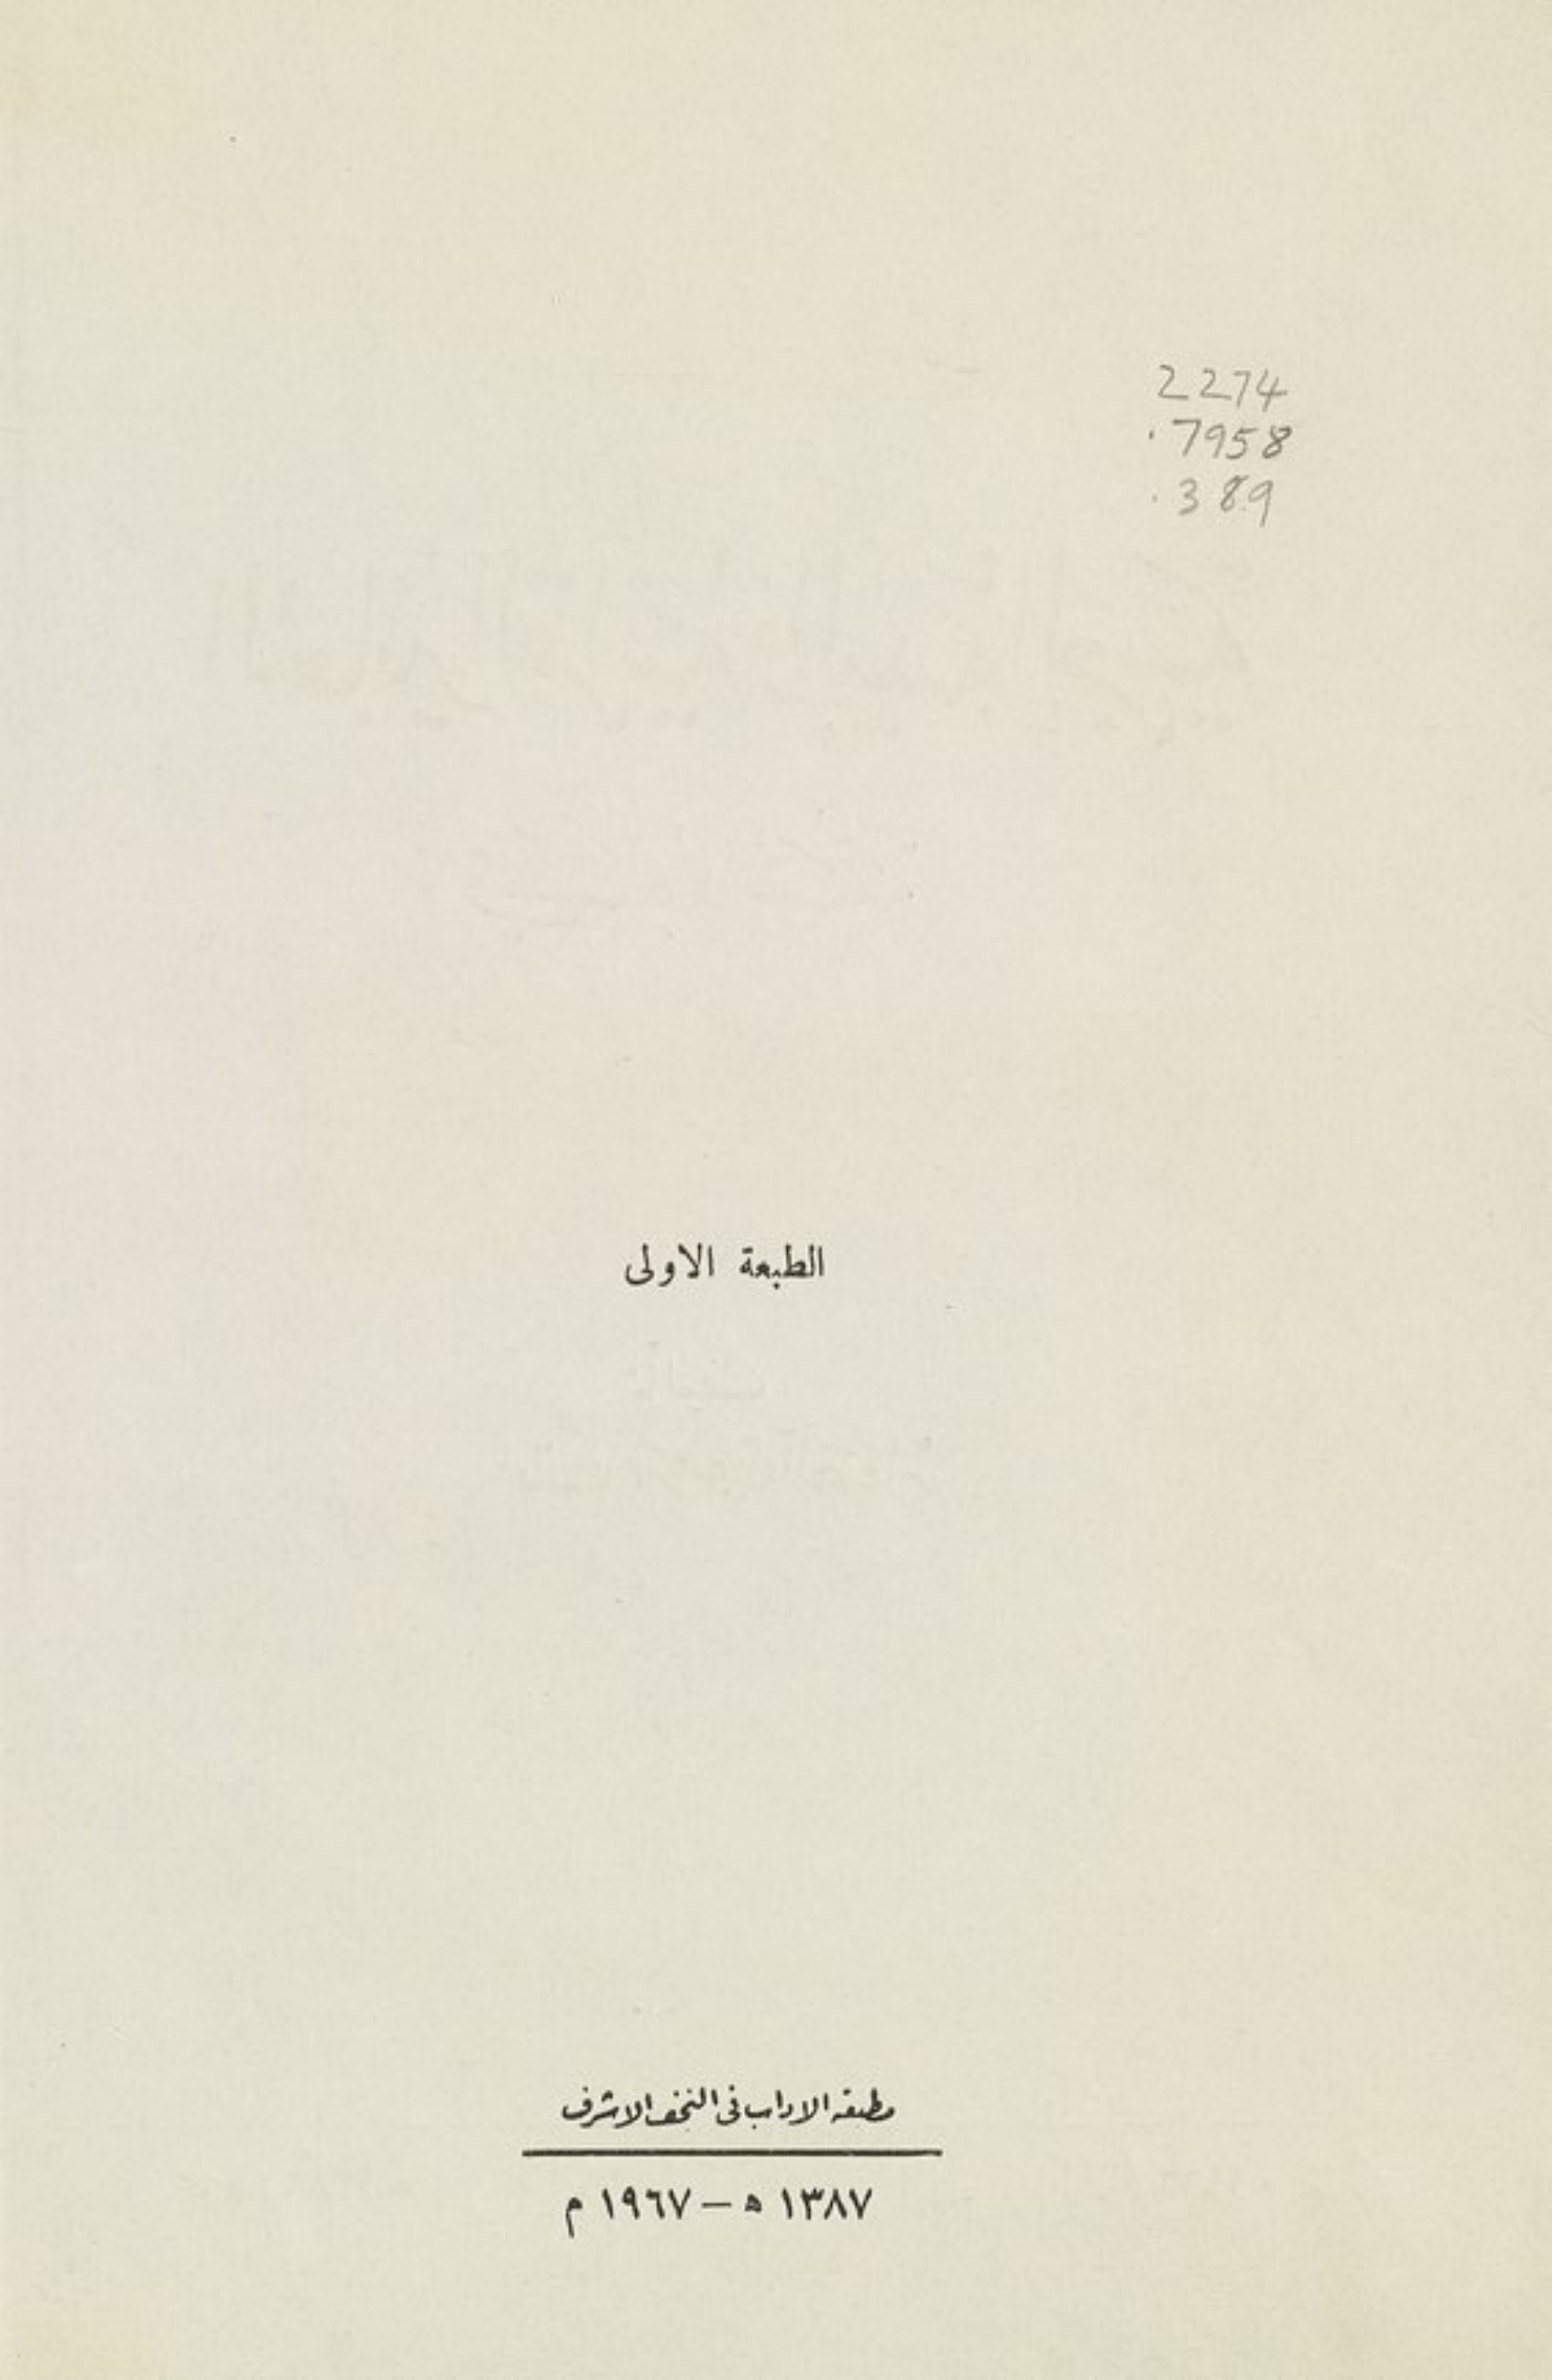 2274
.7958
.389
الطبعة الاولى
مطبعة الاداب في النجف الاشرف
١٣٨٧ ه — ١٩٦٧ م